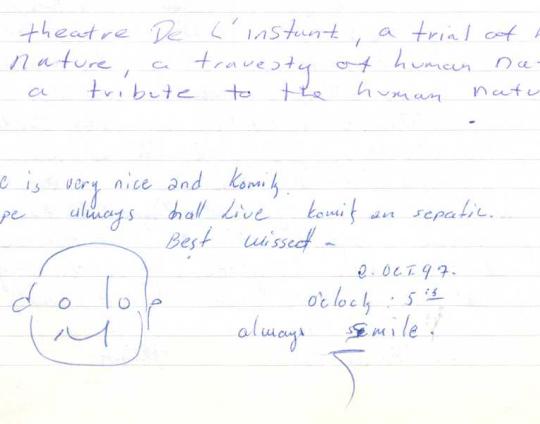 theatre De L'instant, a trial of
nature, a travesty of human na
a tribute to the human natu
is very nice and Komik.
always shall Live komik an sepatic.
Best wissed -
2. OCT 97.
o'clock : 5 15
dolop
always smile!